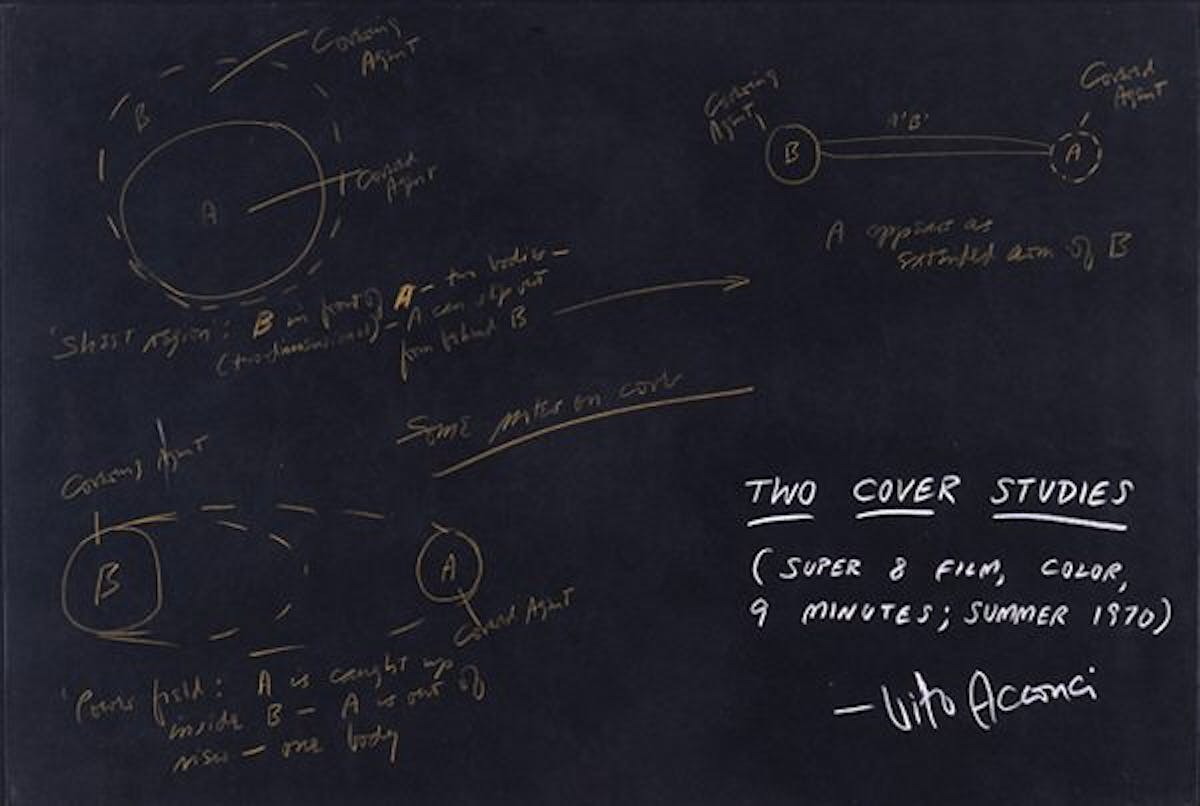 Covering
Agent
B
Covered
Agent
A
'Sheet region': B in front of A – two bodies –
(two-dimensional) – A can slip out
from behind B
Covering
Agent
Covered
Agent
B
'A'B'
A
A appears as
extended arm of B
Some notes on cover
Covering Agent
B
A
Covered Agent
'Power field: A is caught up
inside B – A is out of
view – one body
TWO COVER STUDIES
(SUPER 8 FILM, COLOR,
9 MINUTES; SUMMER 1970)
– Vito Acconci